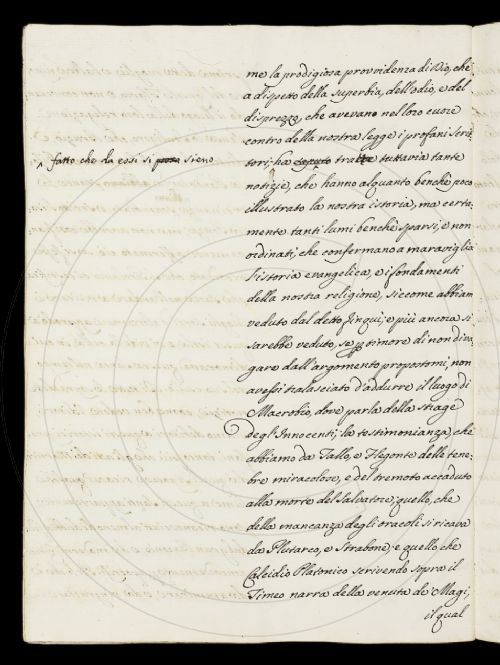 me la prodigiosa provvidenza di Dio, che
a dispetto della superbia, dell'odio, e del
disprezzo, che avevano nel loro cuore
contro della nostra legge i profani scrit
^ fatto che da essi si possa sieno
tori; ha saputo tratte tuttavia tante
notizie, che hanno alquanto benchè poco
illustrato la nostra istoria, ma certa-
mente tanti lumi benchè sparsi, e non
ordinati, che confermano a maraviglia
l'istoria evangelica, e i fondamenti
della nostra religione, siccome abbiam
veduto dal detto finqui, e più ancora si
sarebbe veduto, se p timore di non divu
gare dall'argomento propostomi, non
avessi tralasciato d'addurre il luogo di
Macrobio, dove parla della strage
degli Innocenti; la testimonianza, che
abbiamo da Tallo, e Flegonte delle tene-
bre miracolose, e del tremoto accaduto
alla morte del Salvatore; quello, che
della mancanza degli oracoli si ricava
da Plutarco, e Strabone; e quello che
Calcidio Platonico scrivendo sopra il
Timeo narra della venuta de' Magi;
il qual